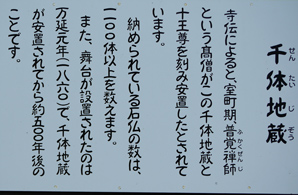 千体地蔵
せんたいじぞう
寺伝によると、室町期、普覚禅師
ふかくぜんじ
という高僧がこの千体地蔵と
十王尊を刻み安置したとされて
います。
納められている石仏の数は、
一一〇〇体以上を数えます。
また、舞台が設置されたのは
万延元年(一八六〇)で、千体地蔵
が安置されてから約五〇〇年後の
ことです。